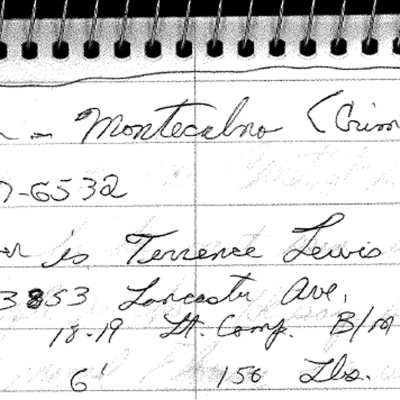 - Montecalmo (Crim
7-6532
er is Terrence Lewis
3853 Lancaster Ave.
18-19 Lt. Comp. B/M
6' 150 Lbs.